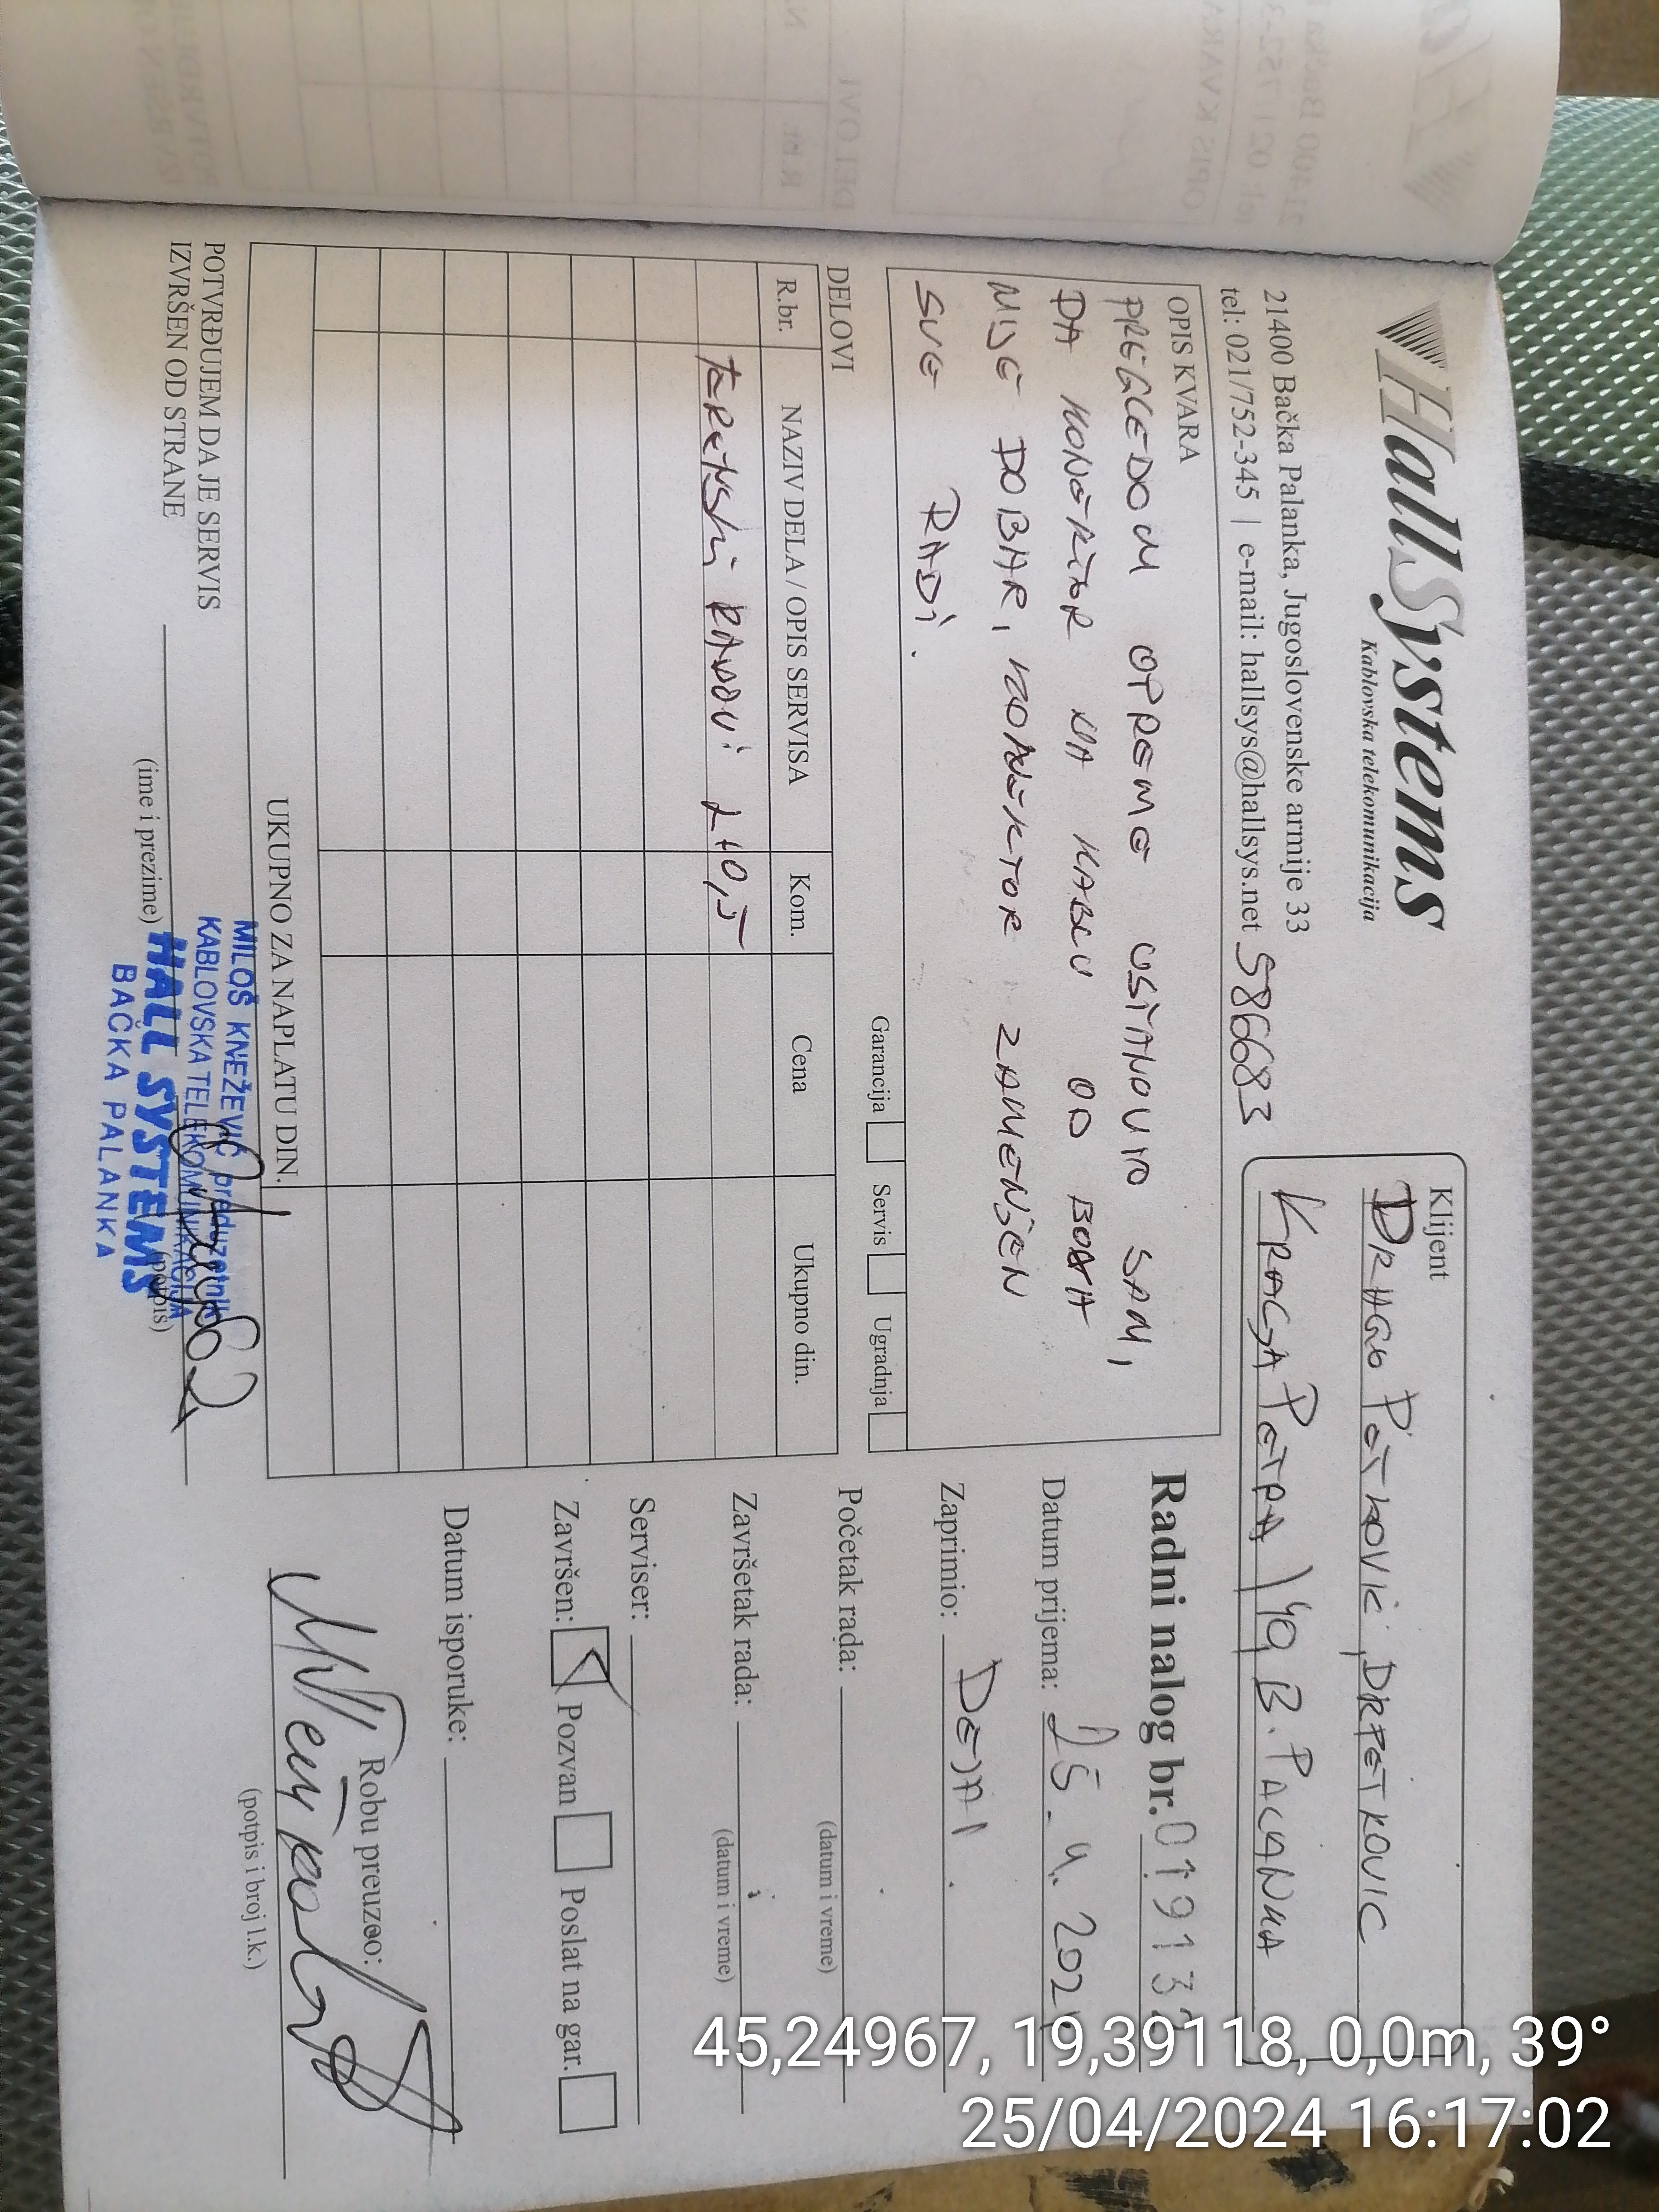 HallSystems
Kablovska telekomunikacija
21400 Bačka Palanka, Jugoslovenske armije 33
tel: 021/752-345 | e-mail: hallsys@hallsys.net 586683
Klijent
DRAGO PETKOVIĆ, DRPETKOVIC
KRALJA PETRA 140, B. PALANKA
OPIS KVARA
PREGLEDOM OPREME USTANOVIO SAM,
DA KONEKTOR NA KABLU OD
NIJE DOBAR, KONEKTOR ZAMENJEN
SVE RADI.
Garancija Servis Ugradnja
DELOVI
R.br. NAZIV DELA / OPIS SERVISA Kom. Cena Ukupno din.
TERENSKI RADOVI 2+0,5
UKUPNO ZA NAPLATU DIN.
POTVRĐUJEM DA JE SERVIS
IZVRŠEN OD STRANE
(ime i prezime) (potpis)
MILOŠ KNEŽEVIĆ preduzetnik
KABLOVSKA TELEKOMUNIKACIJA
HALL SYSTEMS
BAČKA PALANKA
Radni nalog br. 019132
Datum prijema: 25. 4. 202
Zaprimio: DEJAN
Početak rada:
(datum i vreme)
Završetak rada:
(datum i vreme)
Serviser:
Završen: Pozvan Poslat na gar.
Datum isporuke:
Robu preuzeo:
(potpis i broj l.k.)
45,24967, 19,39118, 0,0m, 39°
25/04/2024 16:17:02